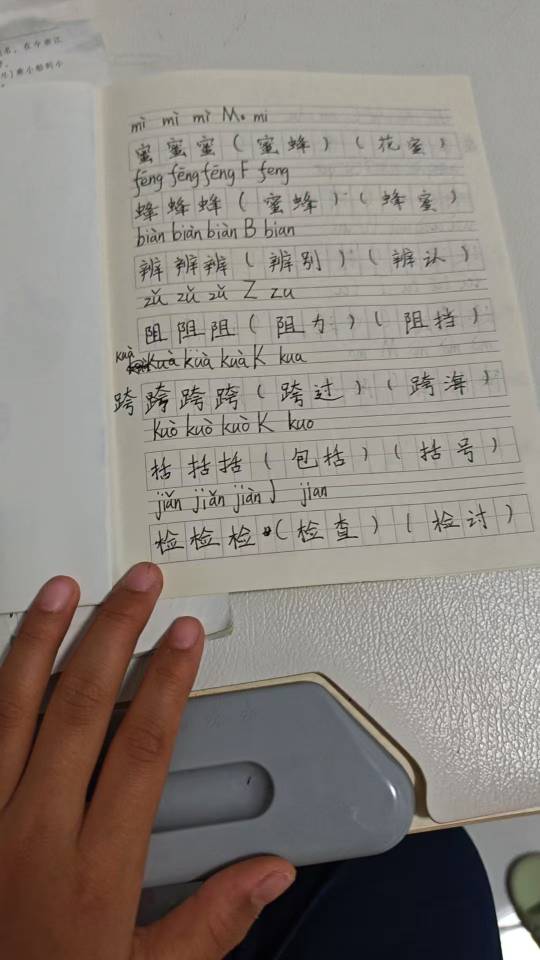 名，在今浙江
小船到小
mì mì mì M mi
蜜蜜蜜(蜜蜂)(花蜜)
fēng fēng fēng F feng
蜂蜂蜂(蜜蜂)(蜂蜜)
biàn biàn biàn B bian
辨辨辨(辨别)(辨认)
zǔ zǔ zǔ Z zu
阻阻阻(阻力)(阻挡)
kuà kuà kuà kuà K kua
跨跨跨跨(跨过)(跨海)
kuò kuò kuò K kuo
括括括(包括)(括号)
jiǎn jiǎn jiàn J jian
检检检(检查)(检讨)